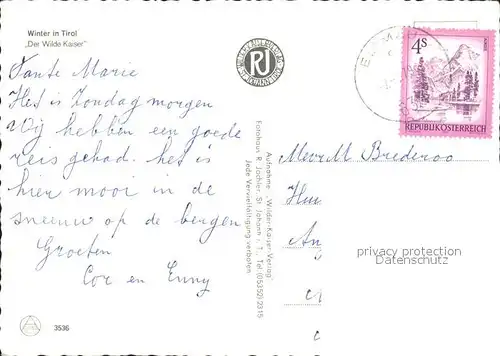 Winter in Tirol
„Der Wilde Kaiser"
Tante Marie
Het is Zondag morgen
Wij hebben een goede
reis gehad. het is
hier mooi in de
sneeuw op de bergen
Groeten
Cor en Enny
3536
RJ
Aufnahme: „Wilder-Kaiser-Verlag"
Fotohaus R. Jöchler, St. Johann i. T., Tel. (05352) 2315
Jede Vervielfältigung verboten
4S
REPUBLIK ÖSTERREICH
Mevr M. Brederoo
privacy protection
Datenschutz